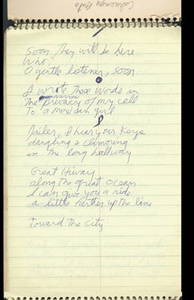 Soon, they will be here
Who?
O gentle listener, soon
I write these words in
the privacy of my cell
To a modern girl
Jailer, I hear our keys
dangling & climbing
in the long hallway
Great Hiway
along the great Ocean
I can give you a ride
a little farther up the line
Toward the City